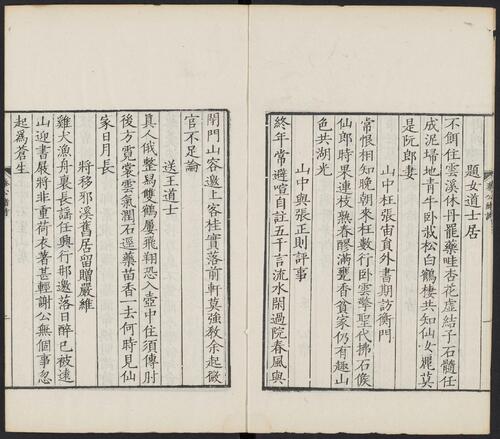 題女道士居
不餌住雲溪休丹罷藥畦杏花虛結子石髓任
成泥掃地青牛臥栽松白鶴棲共知仙女麗莫
是阮郎妻
山中枉張宙員外書期訪衡門
常恨相知晚朝來枉數行臥雲驚聖代拂石候
仙郎時果連枝熟春醪滿甕香貧家仍有趣山
色共湖光
山中與張正則評事
終年常避喧自註五千言流水閒過院春風與
閉門山容邀上客桂實落前軒莫強教余起微
官不足論
送王道士
真人俄整舄雙鶴屢飛翔恐入壺中住須傳肘
後方霓裳雲氣潤石逕藥苗香一去何時見仙
家日月長
將移耶溪舊居留贈嚴維
雞犬漁舟裏長謠任興行那邀落日醉已被遠
山迎書篋將非重荷衣著甚輕謝公無個事忽
起爲蒼生